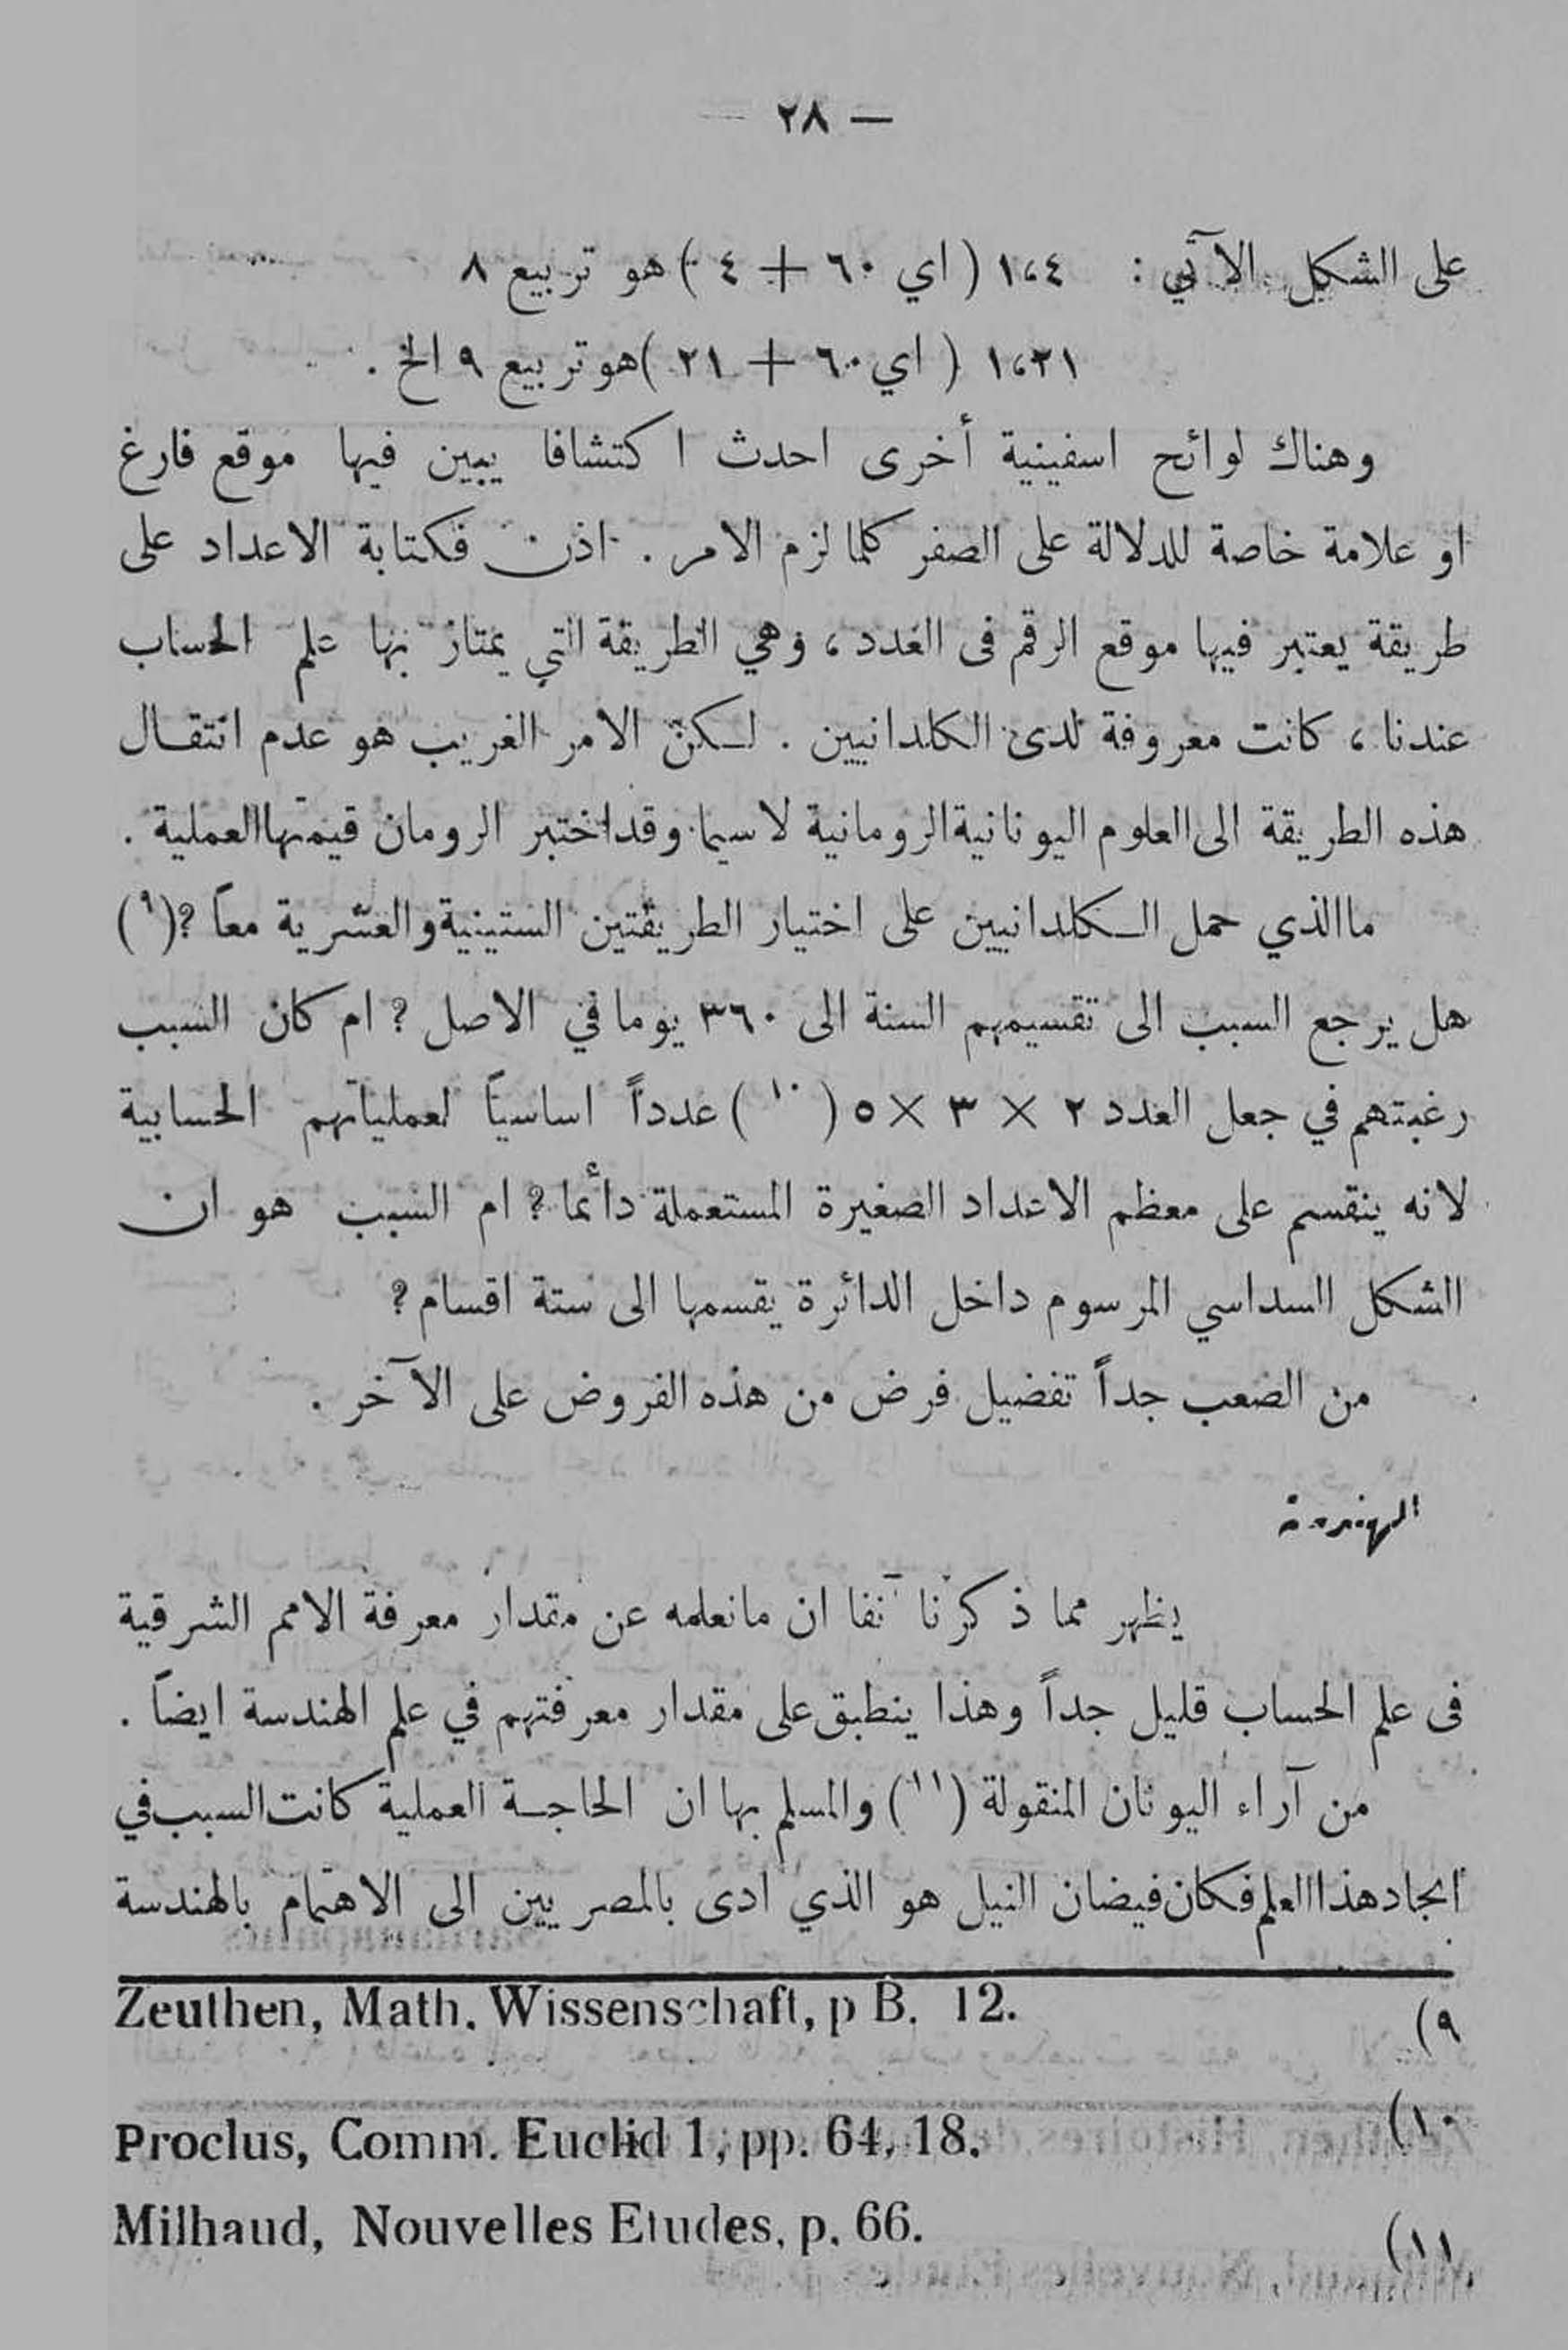 — ٢٨ —
على الشكل الآتي : ١،٤ ( اي ٦٠ + ٤ ) هو تربيع ٨
١،٢١ ( اي ٦٠ + ٢١ ) هو تربيع ٩ الخ .
وهناك لوائح اسفينية أخرى احدث اكتشافا يبين فيها موقع فارغ
او علامة خاصة للدلالة على الصفر كلما لزم الامر . اذن فكتابة الاعداد على
طريقة يعتبر فيها موقع الرقم فى العدد ، وهي الطريقة التي يمتاز بها علم الحساب
عندنا ، كانت معروفة لدى الكلدانيين . لكنّ الامر الغريب هو عدم انتقال
هذه الطريقة الى العلوم اليونانية الرومانية لا سيما وقد اختبر الرومان قيمتها العملية .
ما الذي حمل الكلدانيين على اختيار الطريقتين الستينية والعشرية معاً ؟ (٩)
هل يرجع السبب الى تقسيمهم السنة الى ٣٦٠ يوما في الاصل ؟ ام كان السبب
رغبتهم في جعل العدد ٢ × ٣ × ٥ (١٠) عدداً اساسياً لعملياتهم الحسابية
لانه ينقسم على معظم الاعداد الصغيرة المستعملة دأئما ؟ ام السبب هو ان
الشكل السداسي المرسوم داخل الدائرة يقسمها الى ستة اقسام ؟
من الصعب جداً تفضيل فرض من هذه الفروض على الآخر .
الهندسة
يظهر مما ذكرنا آنفا ان مانعلمه عن مقدار معرفة الامم الشرقية
فى علم الحساب قليل جداً وهذا ينطبق على مقدار معرفتهم في علم الهندسة ايضاً .
من آراء اليونان المنقولة (١١) والمسلم بها ان الحاجة العملية كانت السبب في
ايجاد هذا العلم فكان فيضان النيل هو الذي ادى بالمصريين الى الاهتمام بالهندسة
Zeuthen, Math. Wissenschaft, p B. 12. (٩
Proclus, Comm. Euclid 1, pp. 64, 18. (١٠
Milhaud, Nouvelles Etudes, p. 66. (١١